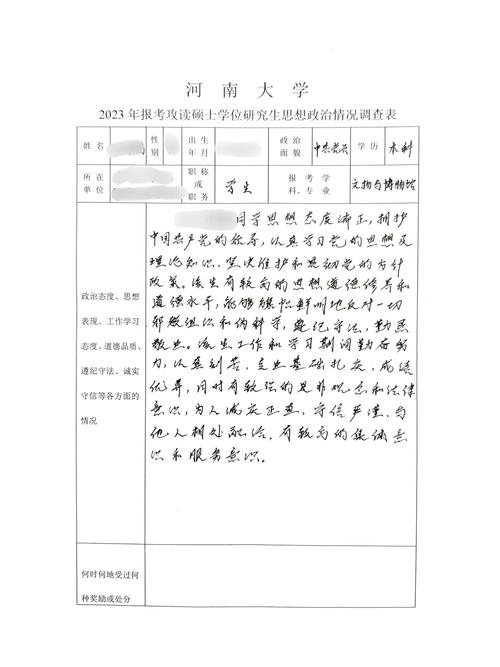 河南大学
2023年报考攻读硕士学位研究生思想政治情况调查表
姓名 性别 出生年月 政治面貌 中共党员 学历 本科
所在单位 职称或职务 学生 报考学科、专业 文物与博物馆
政治态度、思想表现、工作学习态度、道德品质、遵纪守法、诚实守信等各方面的情况
同学思想态度端正，拥护
中国共产党的领导，认真学习党的思想及
理论知识，坚决维护和贯彻党的方针
政策。该生有较高的思想道德修养和
道德水平，能够旗帜鲜明地反对一切
邪教组织和伪科学，遵纪守法，勤恳
敬业。该生工作和学习期间勤奋努
力，认真刻苦，专业基础扎实，成绩
优异，同时有较强的是非观念和法律
意识，为人诚实正直，守信严谨，与
他人相处融洽，有较高的集体意
识和服务意识。
何时何地受过何种奖励或处分